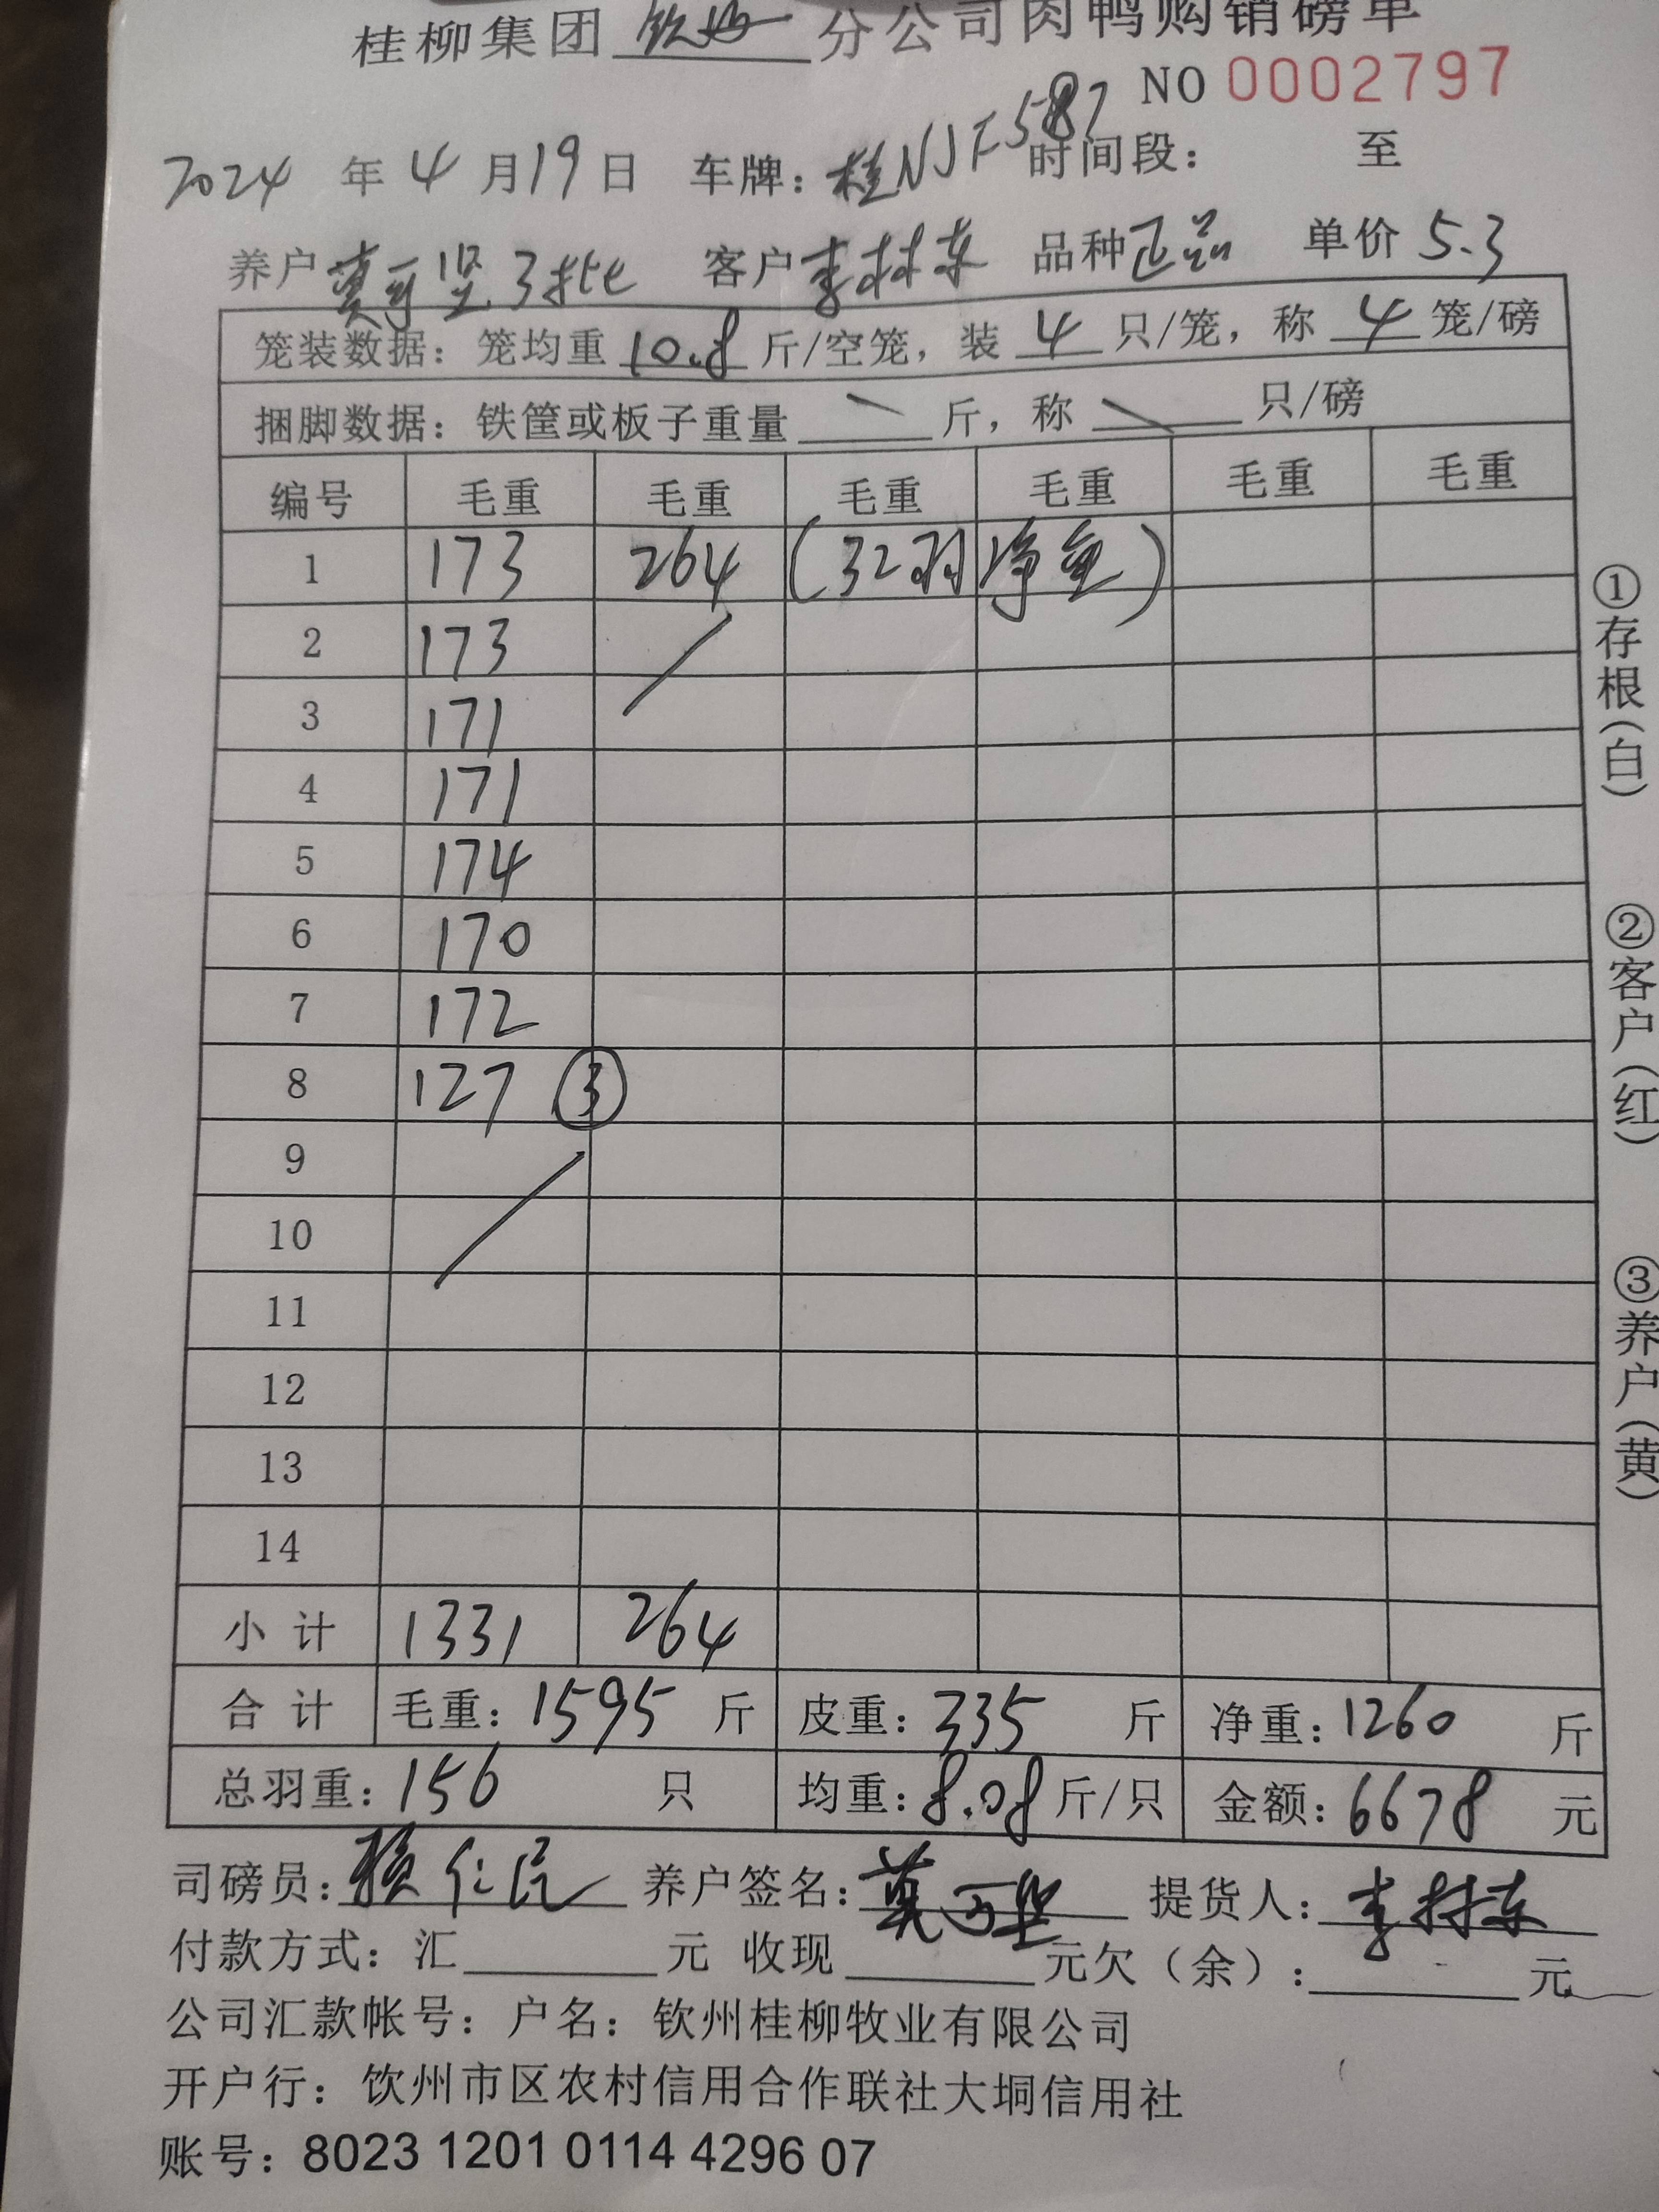 桂柳集团 钦州 分公司肉鸭购销磅单
NO 0002797
2024 年 4 月 19 日 车牌：桂NJF587 时间段： 至
养户 莫 坚 3批 客户 李林东 品种 正品 单价 5.3
笼装数据：笼均重 10.8 斤/空笼，装 4 只/笼，称 4 笼/磅
捆脚数据：铁筐或板子重量 斤，称 只/磅
编号 毛重 毛重 毛重 毛重 毛重 毛重
1 173 264 (32羽 净重)
2 173
3 171
4 171
5 174
6 170
7 172
8 127 ③
9
10
11
12
13
14
小计 1331 264
合计 毛重：1595 斤 皮重：335 斤 净重：1260 斤
总羽重：156 只 均重：8.08 斤/只 金额：6678 元
司磅员：仁民 养户签名：莫 坚 提货人：李林东
付款方式：汇 元 收现 元欠（余）： 元
公司汇款帐号：户名：钦州桂柳牧业有限公司
开户行：钦州市区农村信用合作联社大垌信用社
账号：8023 1201 0114 4296 07
①存根(白)
②客户(红)
③养户(黄)